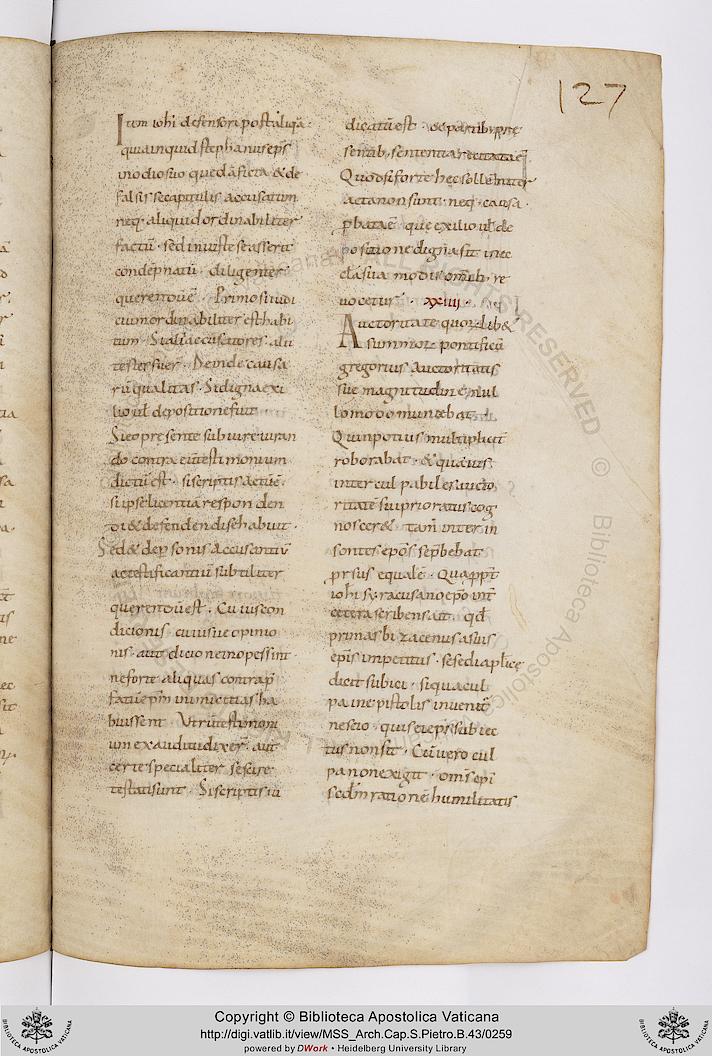 127
Itum iohi defensori post aliqa:
quia inquid stephanus eps
in odio suo quedā ficta & de
falsis se capitulis accusatum
neq· aliquid ordinabiliter
factū· sed iniuste se asserit
condepnatū· diligenter
querendū ē· Primo si iudi
cium ordinabiliter est habi
tum· Si alii accusatores· alii
testes fuer· Deinde causa
rū qualitas· Si digna exi
lio ul depositione fuit·
Si eo presente sub iure iuran
do contra eū testimonium
dictū est· si scriptis actū ē·
si ipse licentia respon den
di & defendendi se habuit·
Sed & de psonis accusantiū
ac testificantiū subtiliter
querendū est· Cuius con
dicionis· cuiusue opinio
nis· aut
ne forte aliquas contra p
fatū epm inimicitias ha
buissent· Utrū testimoni
um ex auditu dixer· aut
certe specialiter se scire
testati sunt· Si scriptis iu
dicatū est· & partibus pre
sentib; sententia recitata ē
Quod si forte hec sollēniter
acta non sunt· neq· causa
pbata ē· que exilio ul de
positione digna sit· in ec
clesia sua modis omib; re
uocetur· XXIIII·
Auctoritate quorlib&
summor pontificū
gregorius auctoritatis
sue magnitudinē nul
lo modo minuebat
Quin potius multiplicit
roborabat· & quāuis
inter culpabiles aucto
ritatē sui prioratus cog
nosceret· tam inter in
sontes epos se phebat
prsus equalē·
iohi syracusano epo int
cetera scribens ait· qd
primas bizacenus a suis
epis impetitus· se sedi aplicę
dicit subici· si qua cul
pa in epistolis inuenit
nescio· quis ei eps subiec
tus non sit· Cū uero cul
pa non exigit· oms epi
scdm rationē humilitatis
ALL RIGHTS RESERVED © Biblioteca Apostolica Vaticana
BIBLIOTECA APOSTOLICA VATICANA
Copyright © Biblioteca Apostolica Vaticana
http://digi.vatlib.it/view/MSS_Arch.Cap.S.Pietro.B.43/0259
powered by DWork • Heidelberg University Library
BIBLIOTECA APOSTOLICA VATICANA